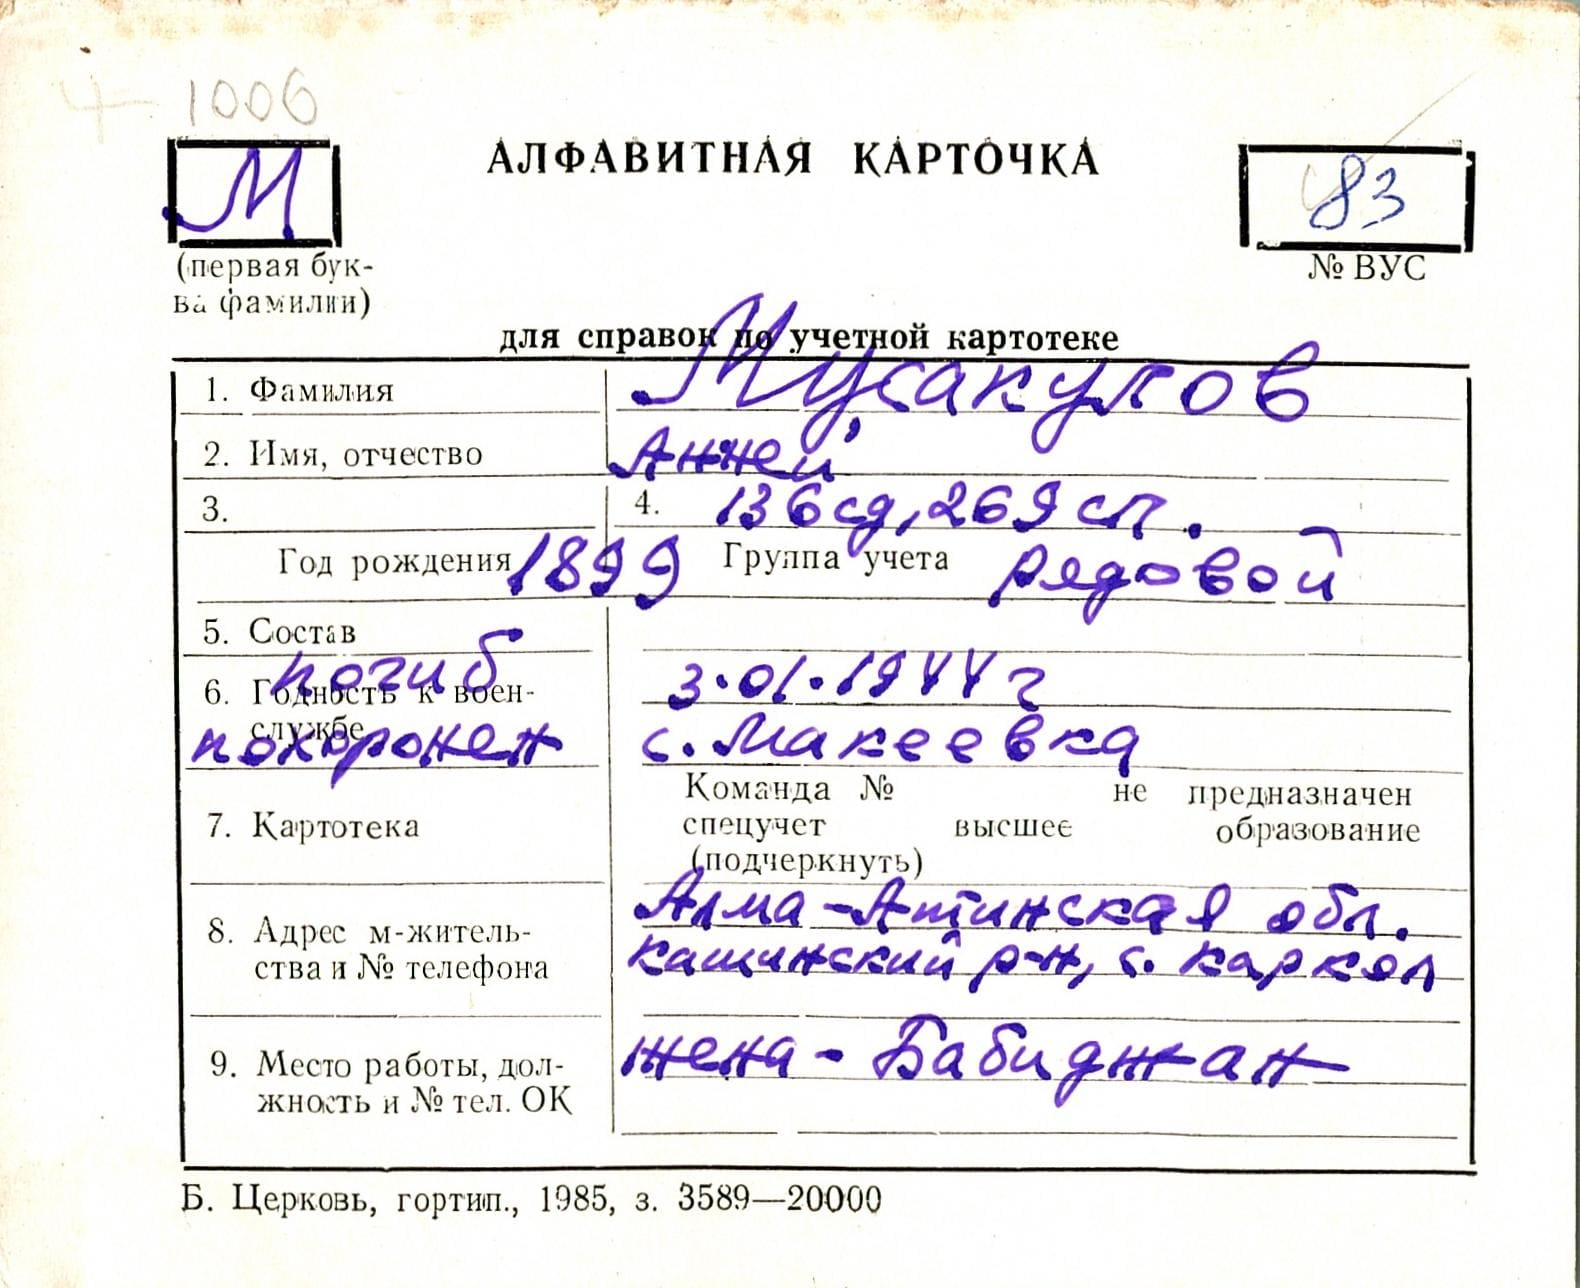 1006
М
АЛФАВИТНАЯ КАРТОЧКА
83
(первая бук-
ва фамилии)
№ ВУС
для справок по учетной картотеке
1. Фамилия Мусакулов
2. Имя, отчество Анжей
3. 4. 136 сд, 269 сп.
Год рождения 1899 Группа учета рядовой
5. Состав
погиб 3.01.1944 г
6. Годность к воен-
службе
похоронен с. Макеевка
Команда № не предназначен
7. Картотека
спецучет высшее образование
(подчеркнуть)
Алма-Атинская обл.
8. Адрес м-житель-
ства и № телефона
кащинский р-н, с. каркол
9. Место работы, дол-
жность и № тел. ОК
жена - Бабиджан
Б. Церковь, гортип., 1985, з. 3589—20000